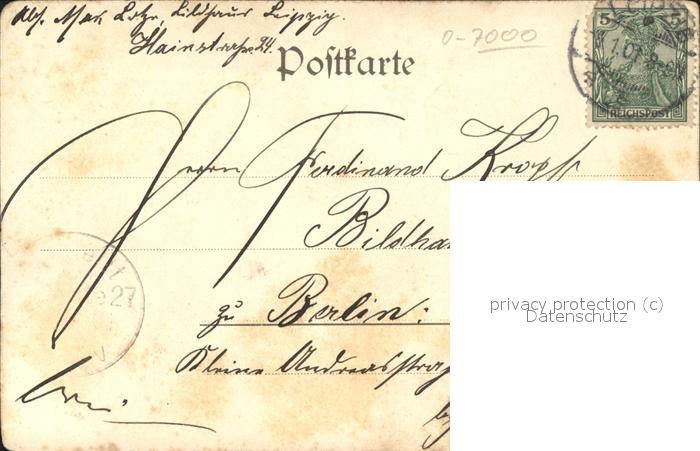 Abs. Max Lotze, Bildhauer Leipzig.
Hainstraße 24.
0-7000
Postkarte
5 5
REICHSPOST
Herrn Ferdinand Kropf
Bildha
zu Berlin:
Kleine Andreasstraß
privacy protection (c)
Datenschutz